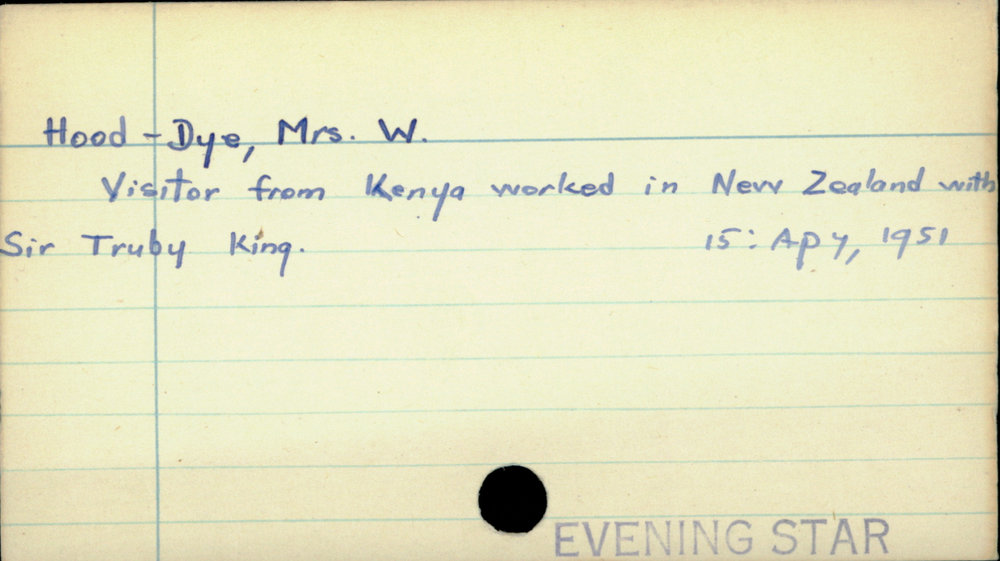 Hood-Dye, Mrs. W.
Visitor from Kenya worked in New Zealand with
Sir Truby King. 15: Ap 4, 1951
EVENING STAR